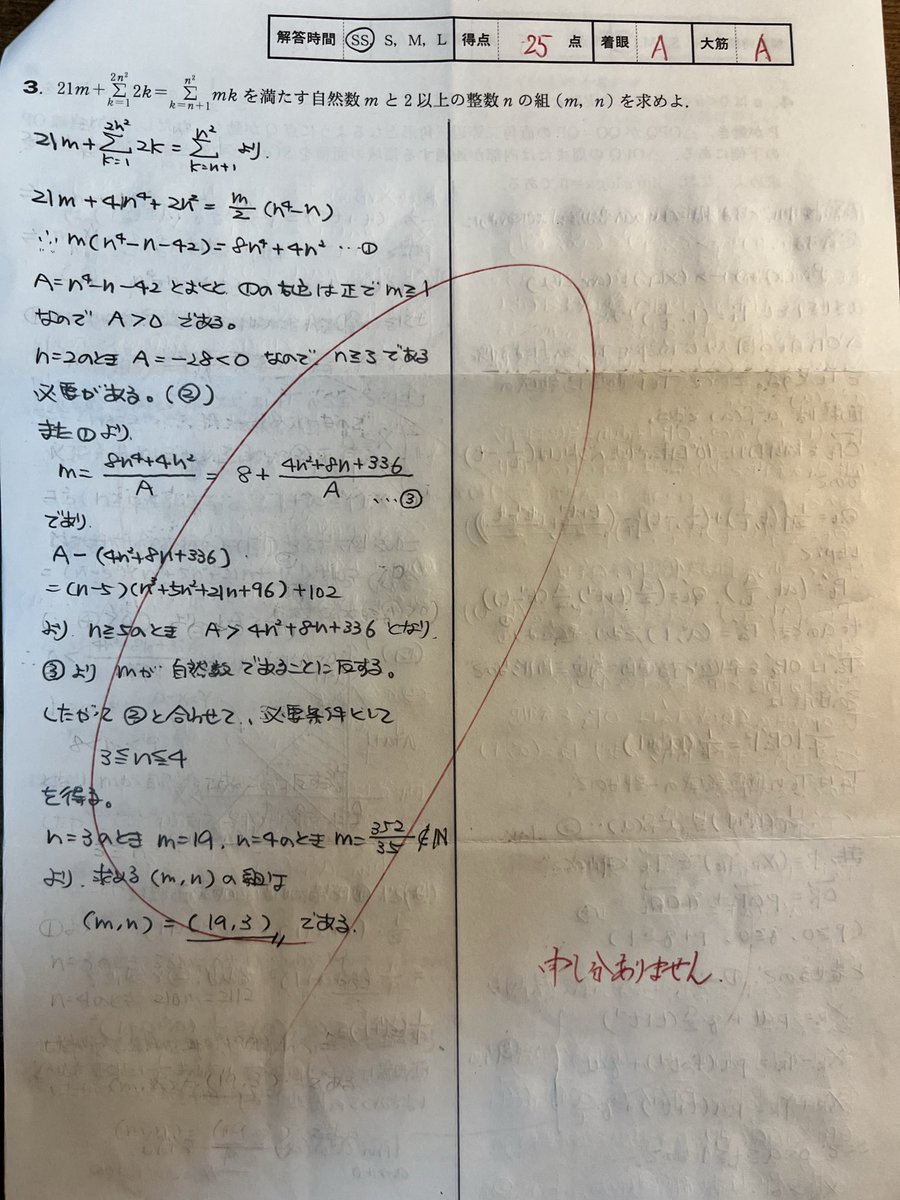 解答時間 SS, S, M, L 得点 25 点 着眼 A 大筋 A
3. 21m+∑_{k=1}^{2n²}2k=∑_{k=n+1}^{n²}mk を満たす自然数 m と 2 以上の整数 n の組 (m, n) を求めよ.
21m+∑_{k=1}^{2n²}2k=∑_{k=n+1}^{n²} より
21m+4n⁴+2n²=m/2(n⁴-n)
∴ m(n⁴-n-42)=8n⁴+4n² …①
A=n⁴-n-42 とおくと ①の右辺は正で m≧1
なので A>0 である。
n=2のとき A=-28<0 なので, n≧3である
必要がある。(②)
また①より,
m=(8n⁴+4n²)/A=8+(4n²+8n+336)/A …③
であり,
A-(4n²+8n+336)
=(n-5)(n³+5n²+21n+96)+102
より n≧5のとき A>4n²+8n+336 となり,
③より mが自然数であることに反する。
したがって ②と合わせて, 必要条件として
3≦n≦4
を得る。
n=3のとき m=19, n=4のとき m=352/35∉ℕ
より, 求める (m,n) の組は
(m,n)=(19,3) である.
申し分ありません.